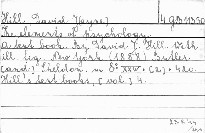 Hill, David J(ayne).
The elements of psychology.
A text book. By David J. Hill. With
ill. fig. New York (1888) Butler
(and) Sheldon. in 8° XXIV + (2) + 420.
Hill's text books, [vol.] 4.